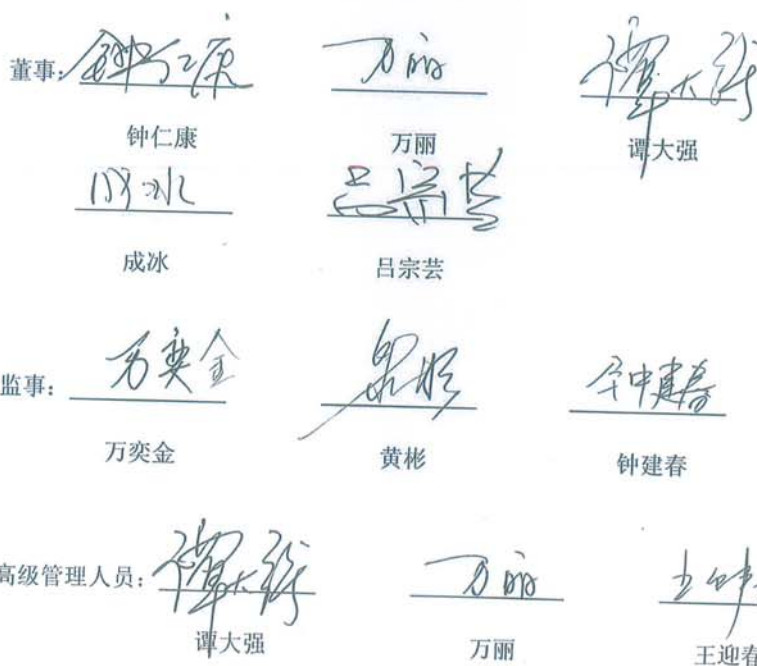 董事: 钟仁康 万丽 谭大强
钟仁康 万丽 谭大强
成冰 吕宗芸
成冰 吕宗芸
监事: 万奕金 黄彬 钟建春
万奕金 黄彬 钟建春
高级管理人员: 谭大强 万丽
谭大强 万丽 王迎春